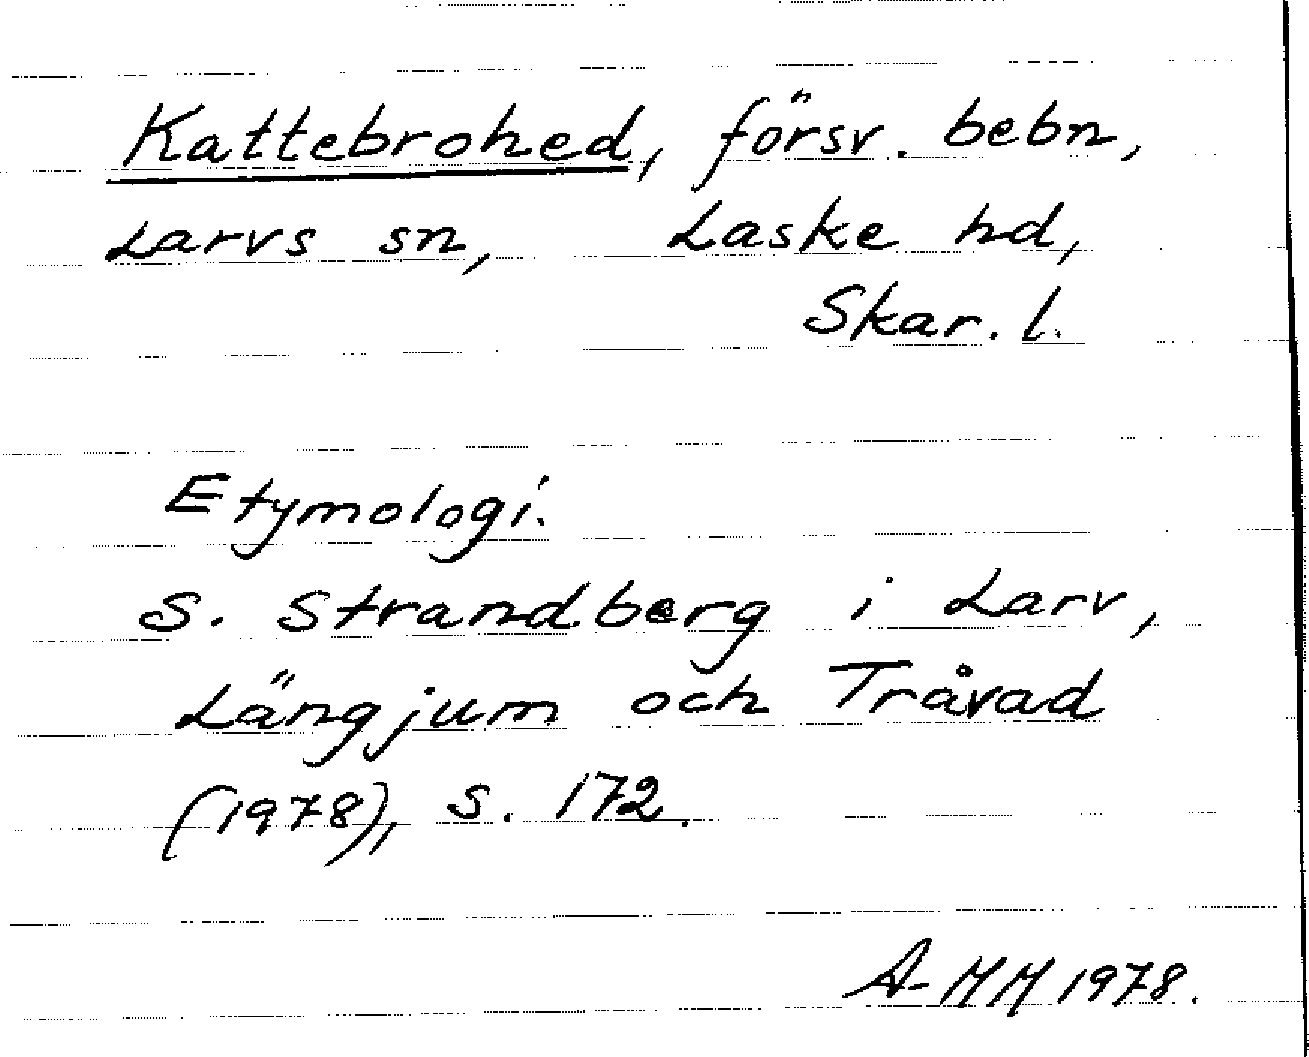 Kattebrohed, försv. bebn,
Larvs sn, Laske hd,
Skar. l.
Etymologi.
S. Strandberg i Larv,
Längjum och Tråvad
(1978), s. 172.
A-MM 1978.